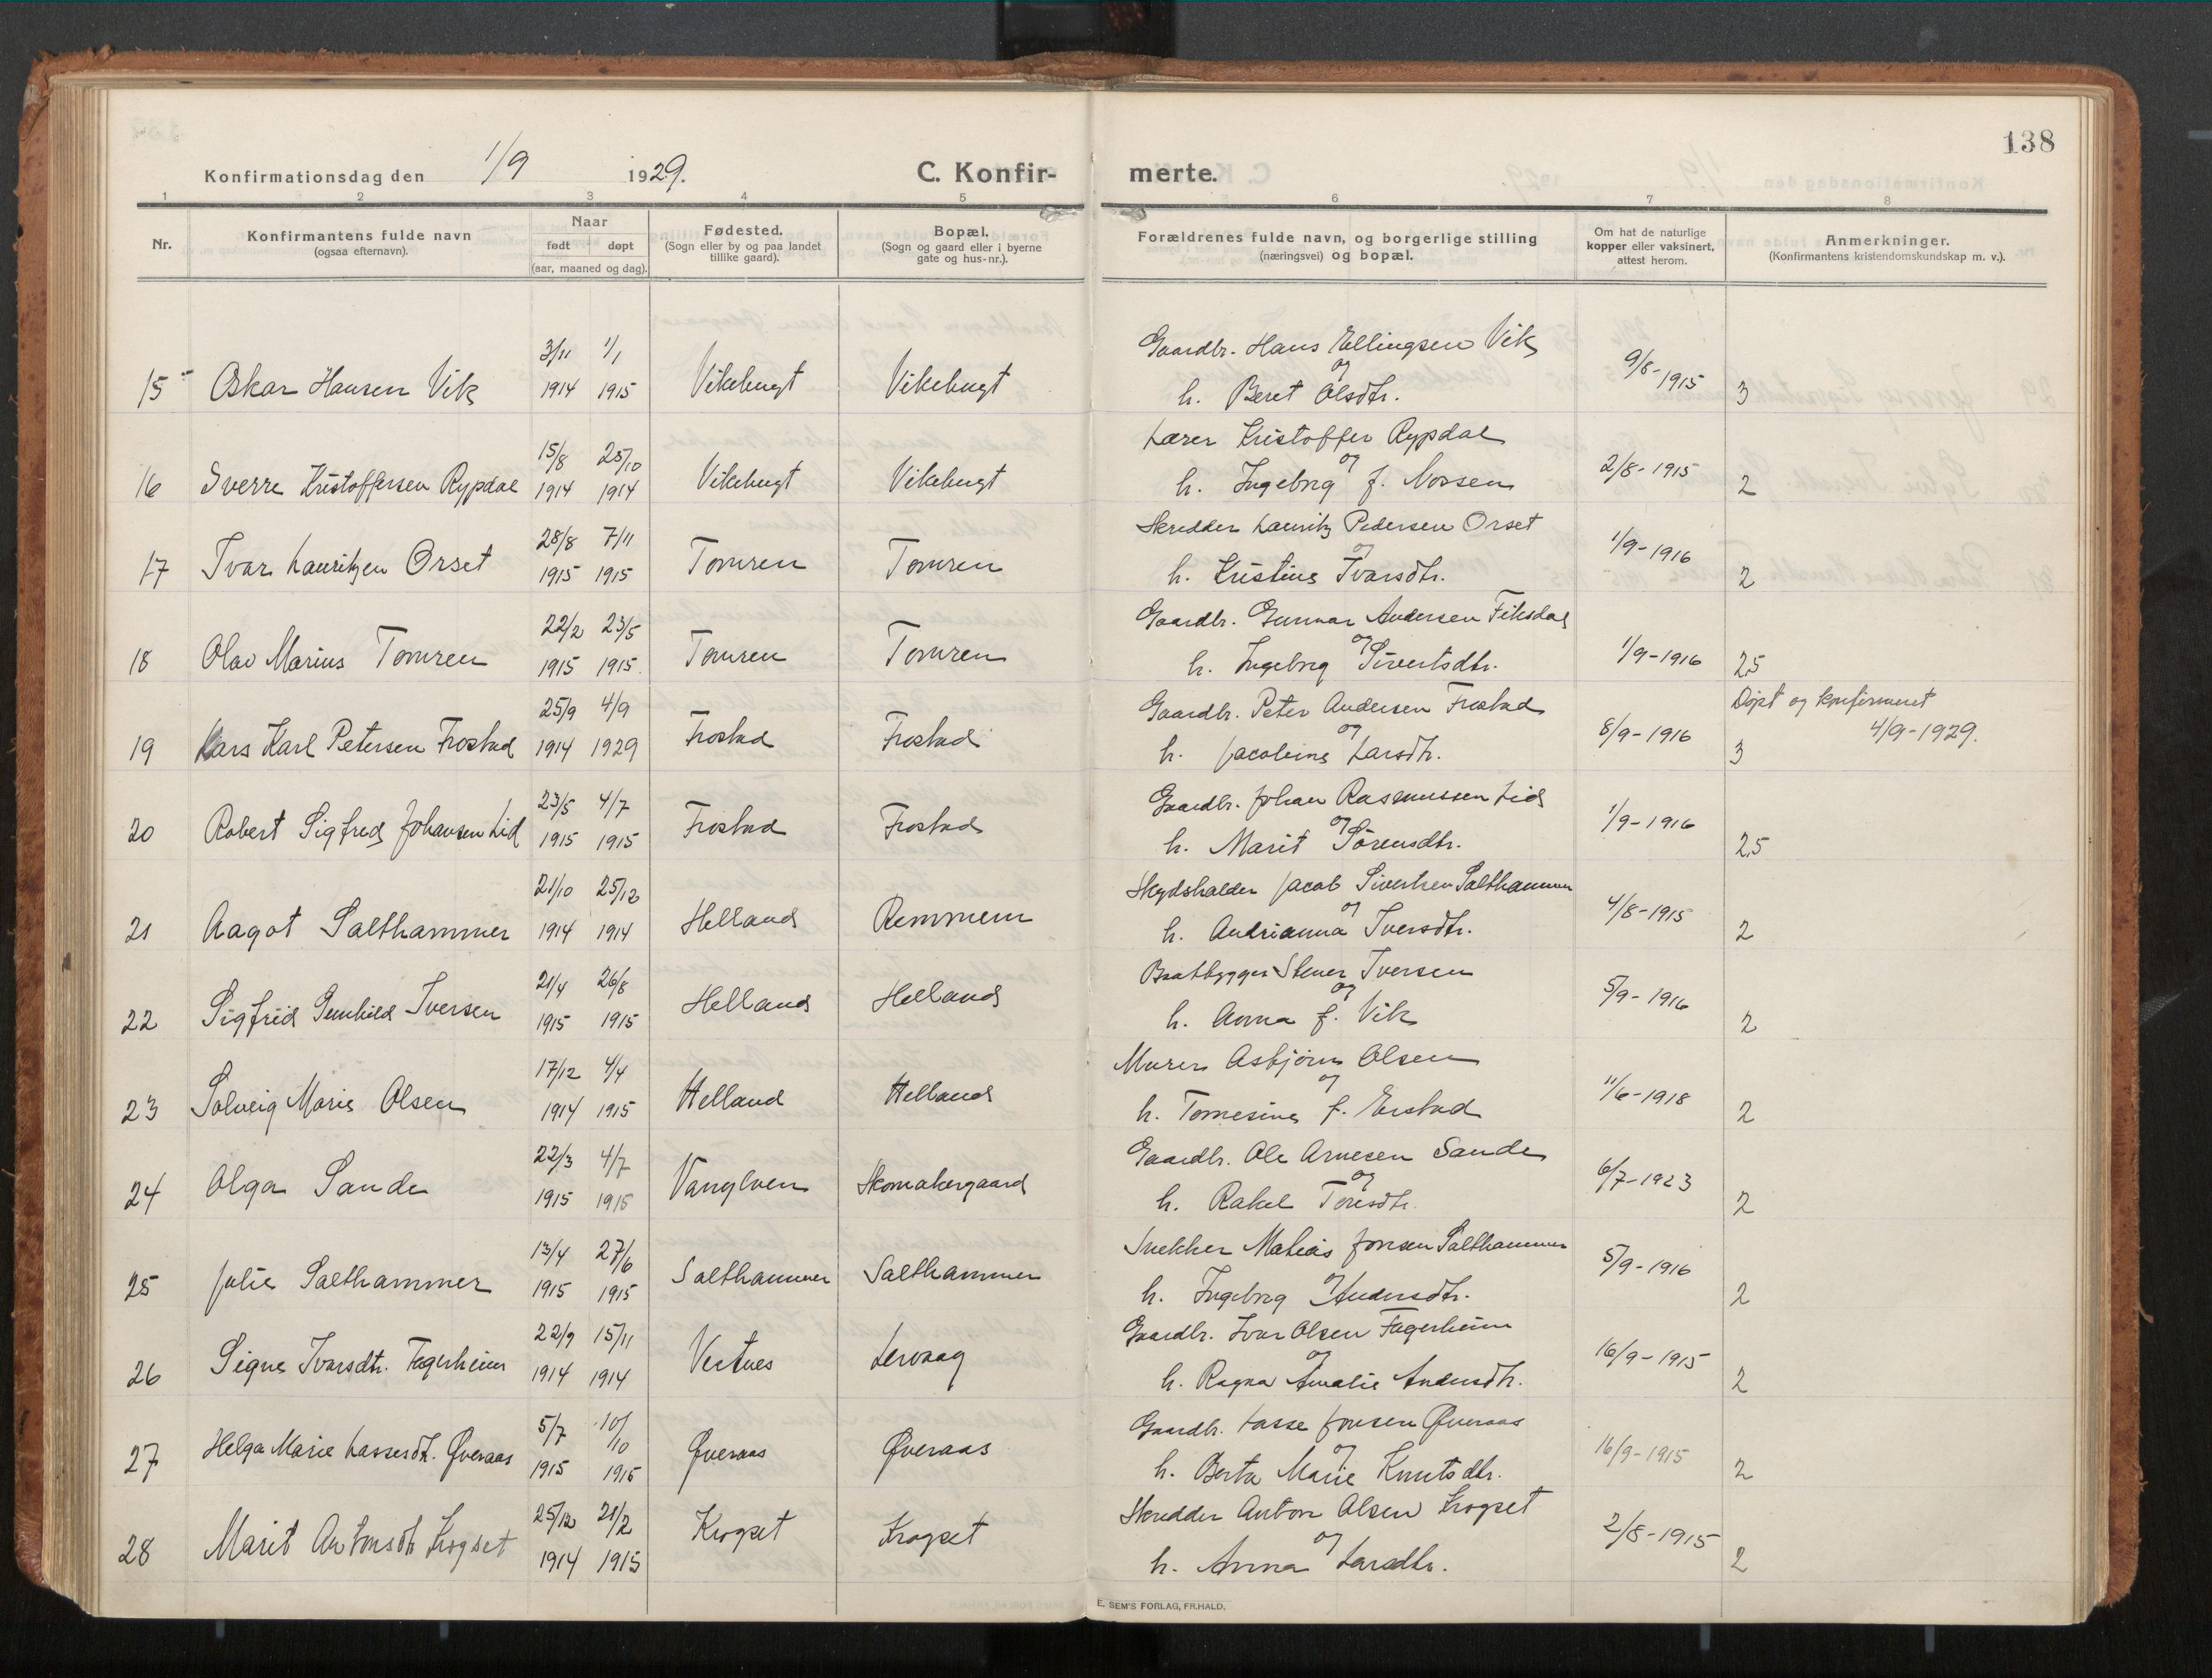 138
Konfirmationsdag den 1/9 1929. C. Konfir- merte.
1 2 3 4 5 6 7 8
Nr.
Konfirmantens fulde navn
(ogsaa efternavn).
Naar
født døpt
(aar, maaned og dag).
Fødested.
(Sogn eller by og paa landet
tillike gaard).
Bopæl.
(Sogn og gaard eller i byerne
gate og hus-nr.).
Forældrenes fulde navn, og borgerlige stilling
(næringsvei) og bopæl.
Om hat de naturlige
kopper eller vaksinert,
attest herom.
Anmerkninger.
(Konfirmantens kristendomskundskap m. v.).
3/11 1/1 Gaardbr. Hans Ellingsen Vik
og
15 Oskar Hansen Vik 1914 1915 Vikebugt Vikebugt h. Beret Olsdtr. 9/8-1915 3
15/8 25/10 Lærer Kristoffer Rypdal
og
16 Sverre Kristoffersen Rypdal 1914 1914 Vikebugt Vikebugt h. Ingebrig f. Nossen 2/8-1915 2
28/8 7/11 Skredder Lauritz Pedersen Orset
og
17 Ivar Lauritzen Orset 1915 1915 Tomren Tomren h. Kristine Ivarsdtr. 1/9-1916 2
22/2 23/5 Gaardbr. Gunnar Andersen Fiksdal
og
18 Olav Marius Tomren 1915 1915 Tomren Tomren h. Ingebrig Sivertsdtr. 1/9-1916 2,5
25/9 4/9 Gaardbr. Peter Andersen Frostad Døpt og konfirmeret
og 4/9-1929.
19 Lars Karl Petersen Frostad 1914 1929 Frostad Frostad h. Jacobine Larsdtr. 8/9-1916 3
23/5 4/7 Gaardbr. Johan Rasmussen Lid
og
20 Robert Sigfred Johansen Lid 1915 1915 Frostad Frostad h. Marit Sørensdtr. 1/9-1916 2,5
21/10 25/12 Skydsholder Jacob Sivertsen Salthammer
og
21 Aagot Salthammer 1914 1914 Helland Remmem h. Andrianna Iversdtr. 4/8-1915 2
21/4 26/8 Baatbygger Stener Iversen
og
22 Sigfrid Gunhild Iversen 1915 1915 Helland Helland h. Anna f. Vik 5/9-1916 2
17/12 4/4 Murer Asbjørn Olsen
og
23 Solveig Marie Olsen 1914 1915 Helland Helland h. Tomesine f. Eistad 11/6-1918 2
22/3 4/7 Gaardbr. Ole Arnesen Sande
og
24 Olga Sande 1915 1915 Vanylven Skomakergaard h. Rakel Toresdtr. 6/7-1923 2
13/4 27/6 Snekker Matias Jonsen Salthammer
og
25 Julie Salthammer 1915 1915 Salthammer Salthammer h. Ingebrig Andersdtr. 5/9-1916 2
22/9 15/11 Gaardbr. Ivar Olsen Fagerheim
og
26 Signe Ivarsdtr. Fagerheim 1914 1914 Vestnes Lervaag h. Ragna Amalie Andersdtr. 16/9-1915 2
5/7 10/10 Gaardbr. Lasse Jonsen Øveraas
og
27 Helga Marie Lassesdtr. Øveraas 1915 1915 Øveraas Øveraas h. Berta Marie Knutsdtr. 16/9-1915 2
25/12 21/2 Skredder Anton Olsen Krogset
og
28 Marit Antonsdtr Krogset 1914 1915 Krogset Krogset h. Anna Larsdtr. 2/8-1915 2
E. SEM'S FORLAG, FR.HALD.